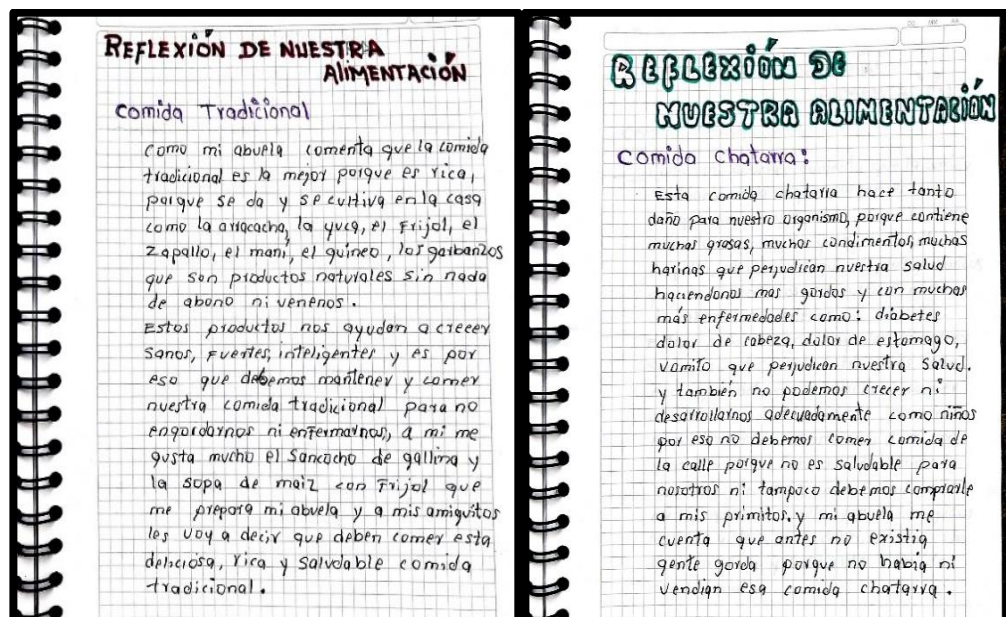 REFLEXIÓN DE NUESTRA
ALIMENTACIÓN
Comida Tradicional
como mi abuela comenta que la comida
tradicional es la mejor porque es rica,
porque se da y se cultiva en la casa
como la arracacha, la yuca, el frijol, el
zapallo, el maní, el guineo, los garbanzos
que son productos naturales sin nada
de abono ni venenos.
Estos productos nos ayudan a crecer
sanos, fuertes, inteligentes y es por
eso que debemos mantener y comer
nuestra comida tradicional para no
engordarnos ni enfermarnos, a mi me
gusta mucho el Sancocho de gallina y
la sopa de maiz con Frijol que
me prepara mi abuela y a mis amiguitos
les voy a decir que deben comer esta
deliciosa, rica y saludable comida
tradicional.
REFLEXIÓN DE
NUESTRA ALIMENTACIÓN
Comida Chatarra:
Esta comida chatarra hace tanto
daño para nuestro organismo, porque contiene
muchas grasas, muchos condimentos, muchas
harinas que perjudican nuestra salud
haciendonos mas gordos y con muchas
más enfermedades como: diabetes
dolor de cabeza, dolor de estomago,
vomito que perjudican nuestra salud.
y también no podemos crecer ni
desarrollarnos adecuadamente como niños
por eso no debemos comer comida de
la calle porque no es saludable para
nosotros ni tampoco debemos comprarle
a mis primitos. y mi abuela me
cuenta que antes no existia
gente gorda porque no habia ni
vendian esa comida chatarra.